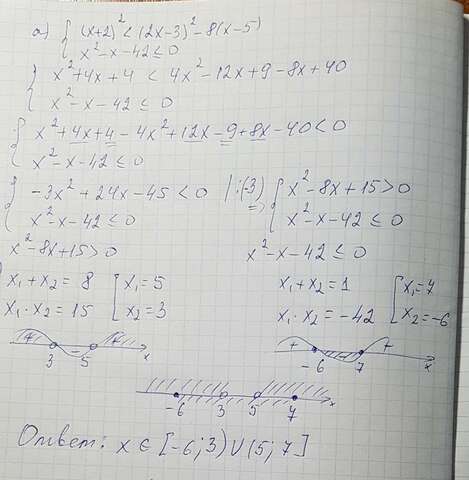 а) { (x+2)² < (2x-3)² - 8(x-5)
x² - x - 42 ≤ 0
{ x² + 4x + 4 < 4x² - 12x + 9 - 8x + 40
x² - x - 42 ≤ 0
{ x² + 4x + 4 - 4x² + 12x - 9 + 8x - 40 < 0
x² - x - 42 ≤ 0
{ -3x² + 24x - 45 < 0 | :(-3) => { x² - 8x + 15 > 0
x² - x - 42 ≤ 0 x² - x - 42 ≤ 0
x² - 8x + 15 > 0 x² - x - 42 ≤ 0
x₁ + x₂ = 8 [ x₁ = 5 x₁ + x₂ = 1 [ x₁ = 7
x₁ · x₂ = 15 x₂ = 3 x₁ · x₂ = -42 x₂ = -6
+ - + x + + x
3 5 -6 7
x
-6 3 5 7
Ответ: x ∈ [-6; 3) ∪ (5; 7]